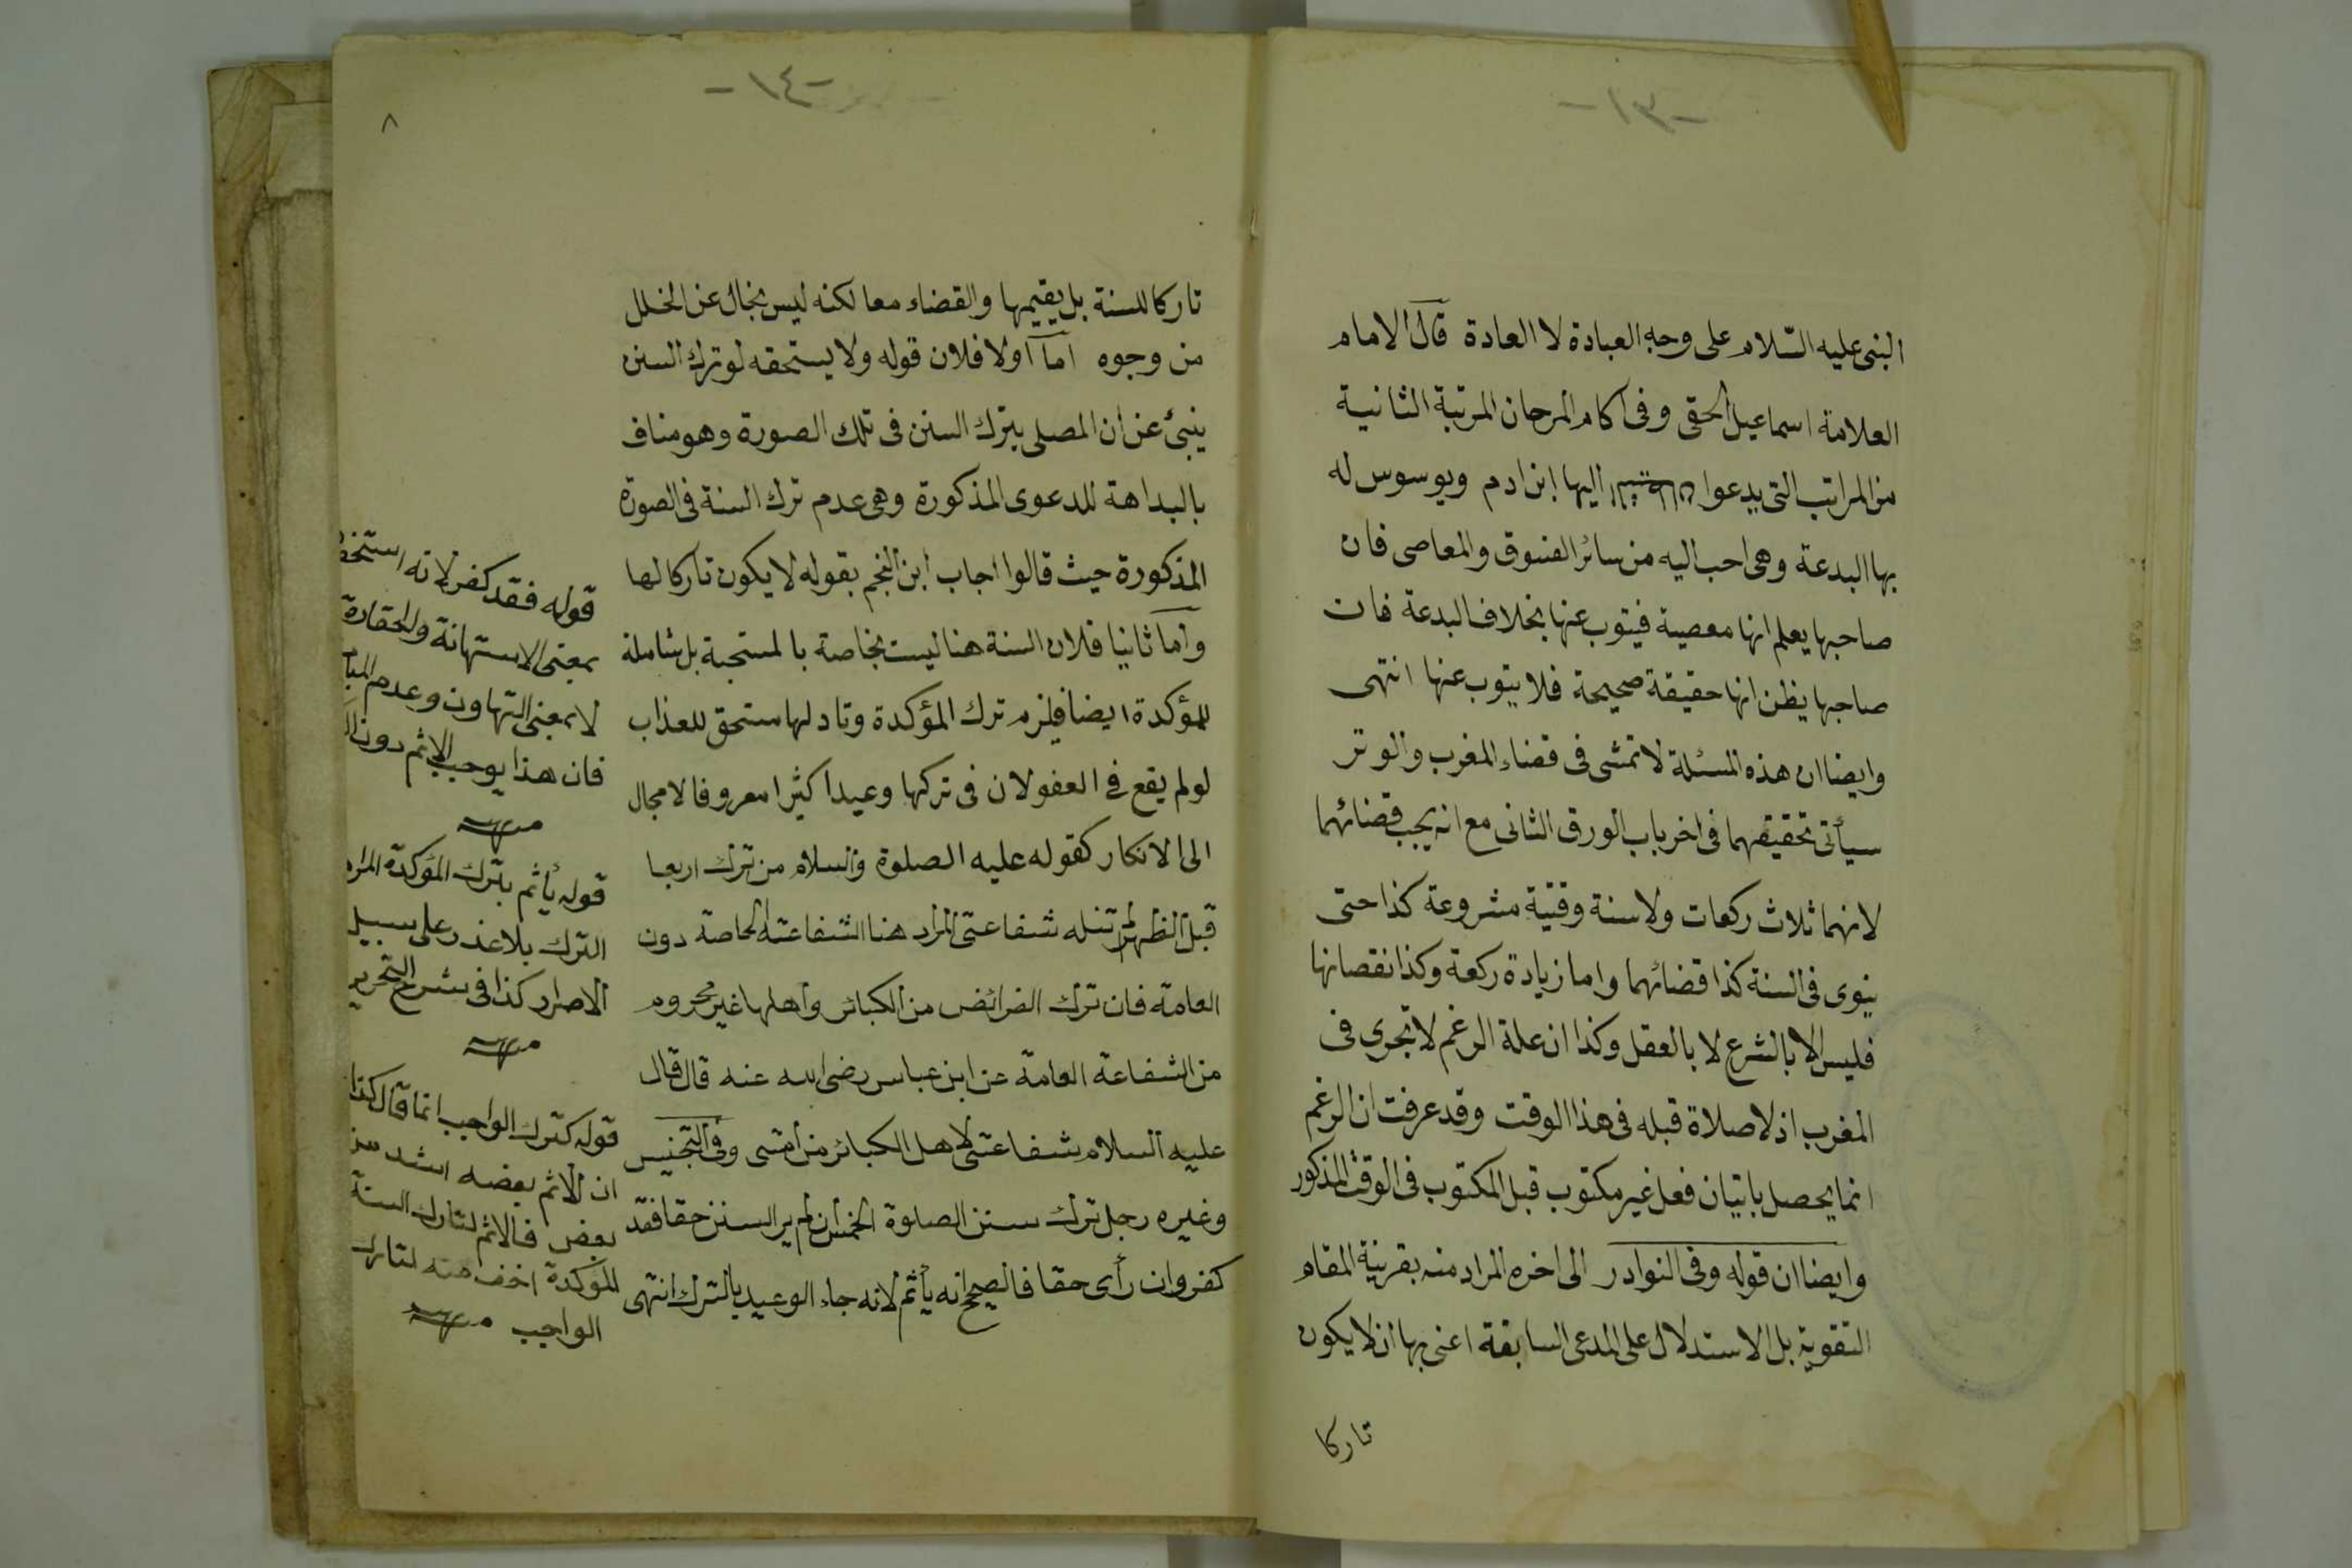 -١٣-
النبى عليه السّلام على وجه العبادة لا العادة قال الامام
العلامة اسماعيل الحقى وفى آكام المرجان المرتبة الثانية
من المراتب التى يدعوا اليها ابن ادم ويوسوس له
بها البدعة وهى احب اليه من سائر الفسوق والمعاصى فان
صاحبها يعلم انها معصية فيتوب عنها بخلاف البدعة فان
صاحبها يظن انها حقيقة صحيحة فلا يتوب عنها انتهى
وايضا ان هذه المسئلة لا تمشى فى قضاء المغرب والوتر
سيأتى تحقيقهما فى اخر باب الورق الثانى مع انه يجب قضائهما
لانهما ثلاث ركعات ولا سنة وقتية مشروعة كذا حتى
ينوى فى السنة كذا قضائهما واما زيادة ركعة وكذا نقصانها
فليس الا بالشرع لا بالعقل وكذا ان علة الرغم لا تجرى فى
المغرب اذ لا صلاة قبله فى هذا الوقت وقد عرفت ان الرغم
انما يحصل باتيان فعل غير مكتوب قبل المكتوب فى الوقت المذكور
وايضا ان قوله وفى النوادر الى اخره المراد منه بقرينة المقام
التقوية بل الاستدلال على المدعى السابقة اعنى بها ان لا يكون
تاركا
-١٤-
٨
تاركا للسنة بل يقيمها والقضاء معا لكنه ليس بخال عن الخلل
من وجوه اما اولا فلان قوله ولا يستحقه لو ترك السنن
ينبئ عن ان المصلى يترك السنن فى تلك الصورة وهو مناف
بالبداهة للدعوى المذكورة وهى عدم ترك السنة فى الصورة
المذكورة حيث قالوا اجاب ابن النجم بقوله لا يكون تاركا لها
وأما ثانيا فلان السنة هنا ليست بخاصة بالمستحبة بل شاملة
للمؤكدة ايضا فيلزم ترك المؤكدة وتا دلها ستحق للعذاب
لو لم يقع فى العفو لان فى تركها وعيدا كثيرا معروفا لا مجال
الى الانكار كقوله عليه الصلوة والسلام من ترك اربعا
قبل الظهر لم تنله شفاعتى المراد هنا الشفاعتة الخاصة دون
العامة فان ترك الفرائض من الكبائر وأهلها غير محروم
من الشفاعة العامة عن ابن عباس رضى الله عنه قال قال
عليه السلام شفاعتى لاهل الكبائر من أمتى وفى التجنيس
وغيره رجل ترك سنن الصلوة الخمس ان لم ير السنن حقا فقد
كفر وان رأى حقا فالصحيح انه يأثم لانه جاء الوعيد بالترك انتهى
قوله فقد كفر لانه استخف
بمعنى الاستهانة والحقارة
لا بمعنى التهاون وعدم
فان هذا يوجب الاثم دون
منه
قوله يأثم بترك المؤكدة المراد
الترك بلا عذر على سبيل
الاصرار كذا فى شرح التحرير
منه
قوله كترك الواجب انما قال كذا
ان الاثم بعضه اشد من
بعض فالاثم لتارك السنة
المؤكدة اخف منه لتارك
الواجب منه